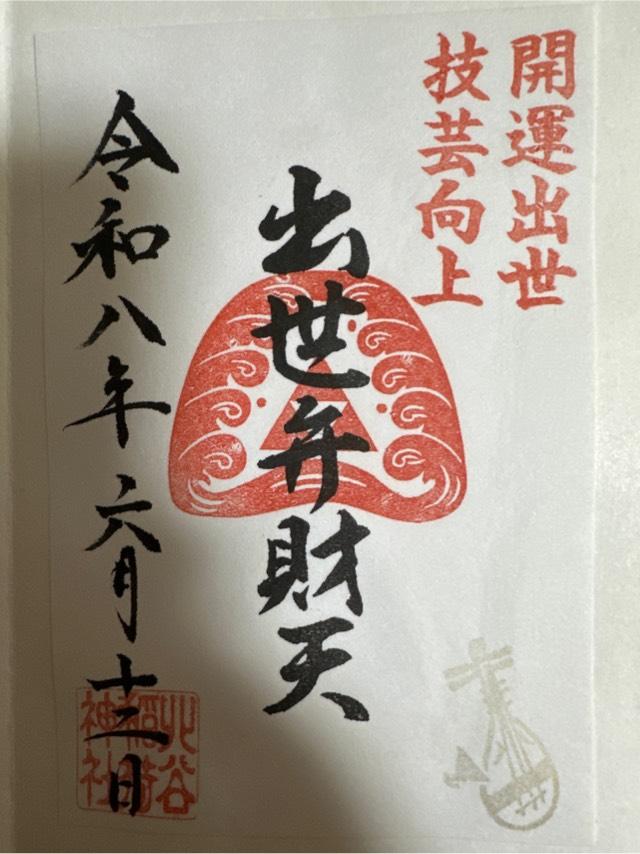 開運出世
技芸向上
出世弁財天
令和八年六月十二日
北谷
稲荷
神社